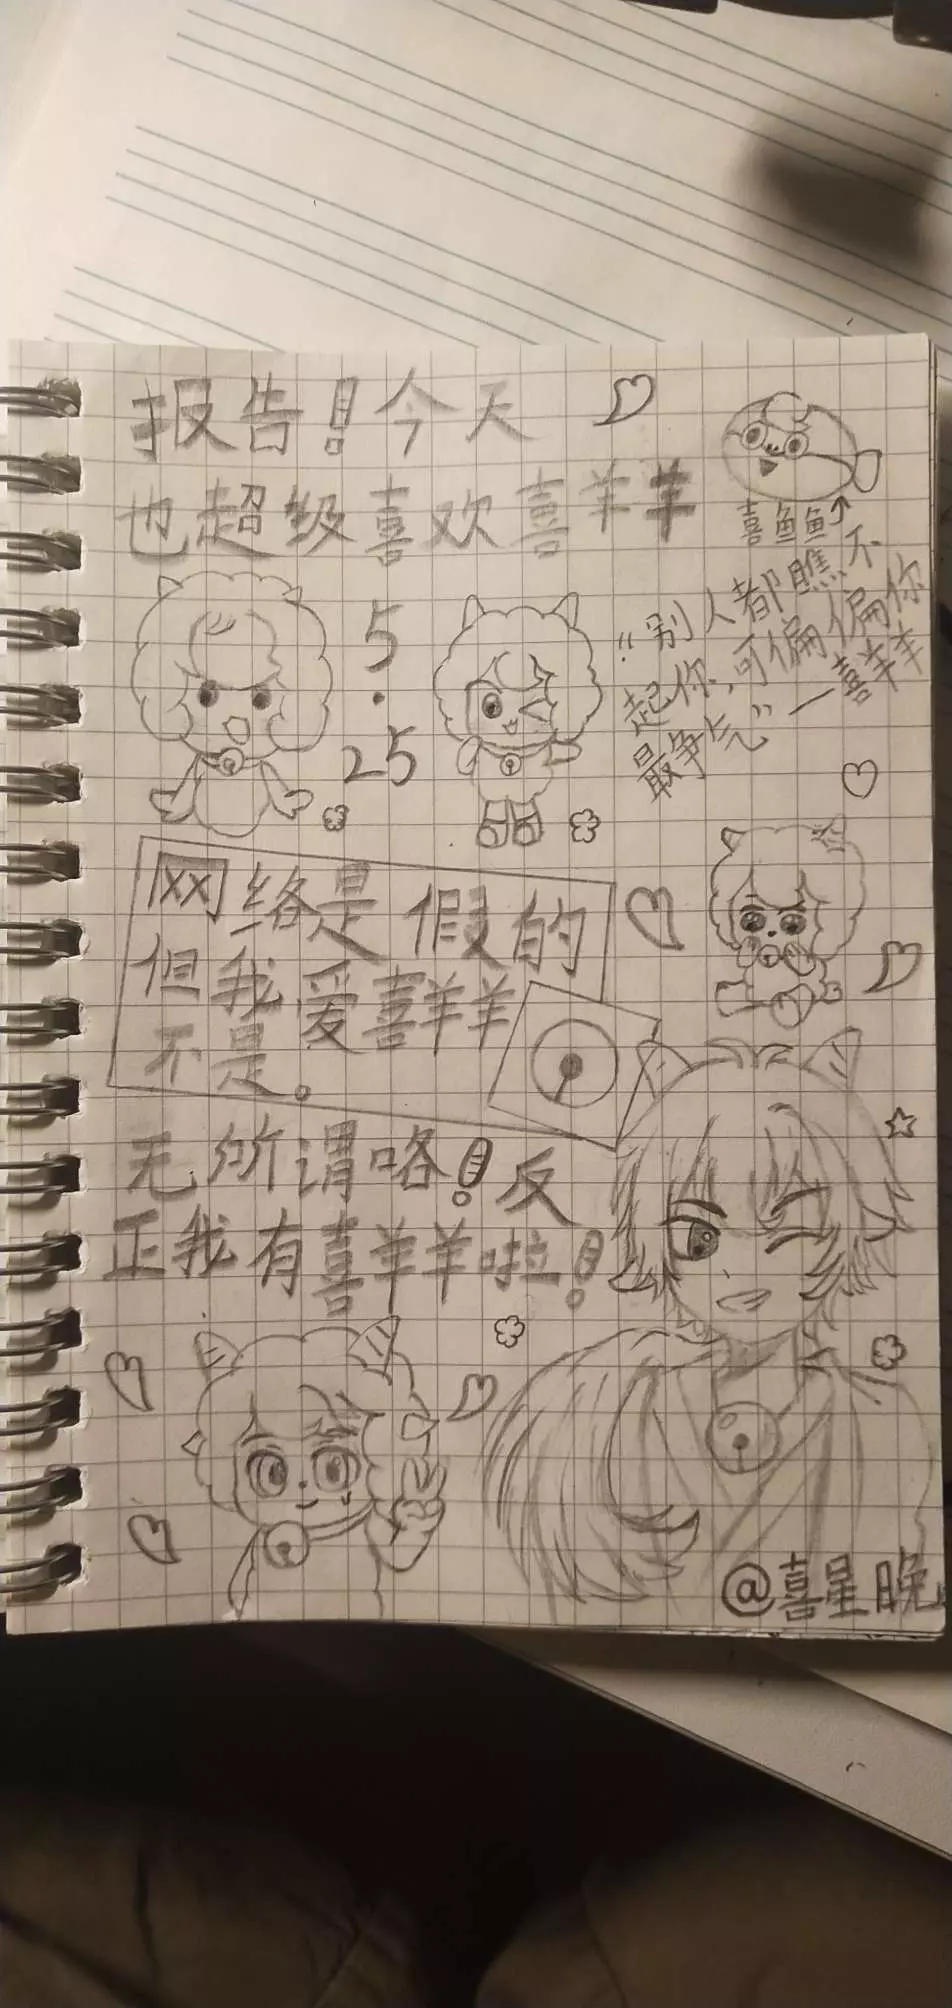 报告！今天
也超级喜欢喜羊羊
喜鱼鱼
5.25
“别人都瞧不
起你，可偏偏你
最争气”—喜羊羊
网络是假的
但我爱喜羊羊
不是。
无所谓咯！反
正我有喜羊羊啦！
@喜星晚